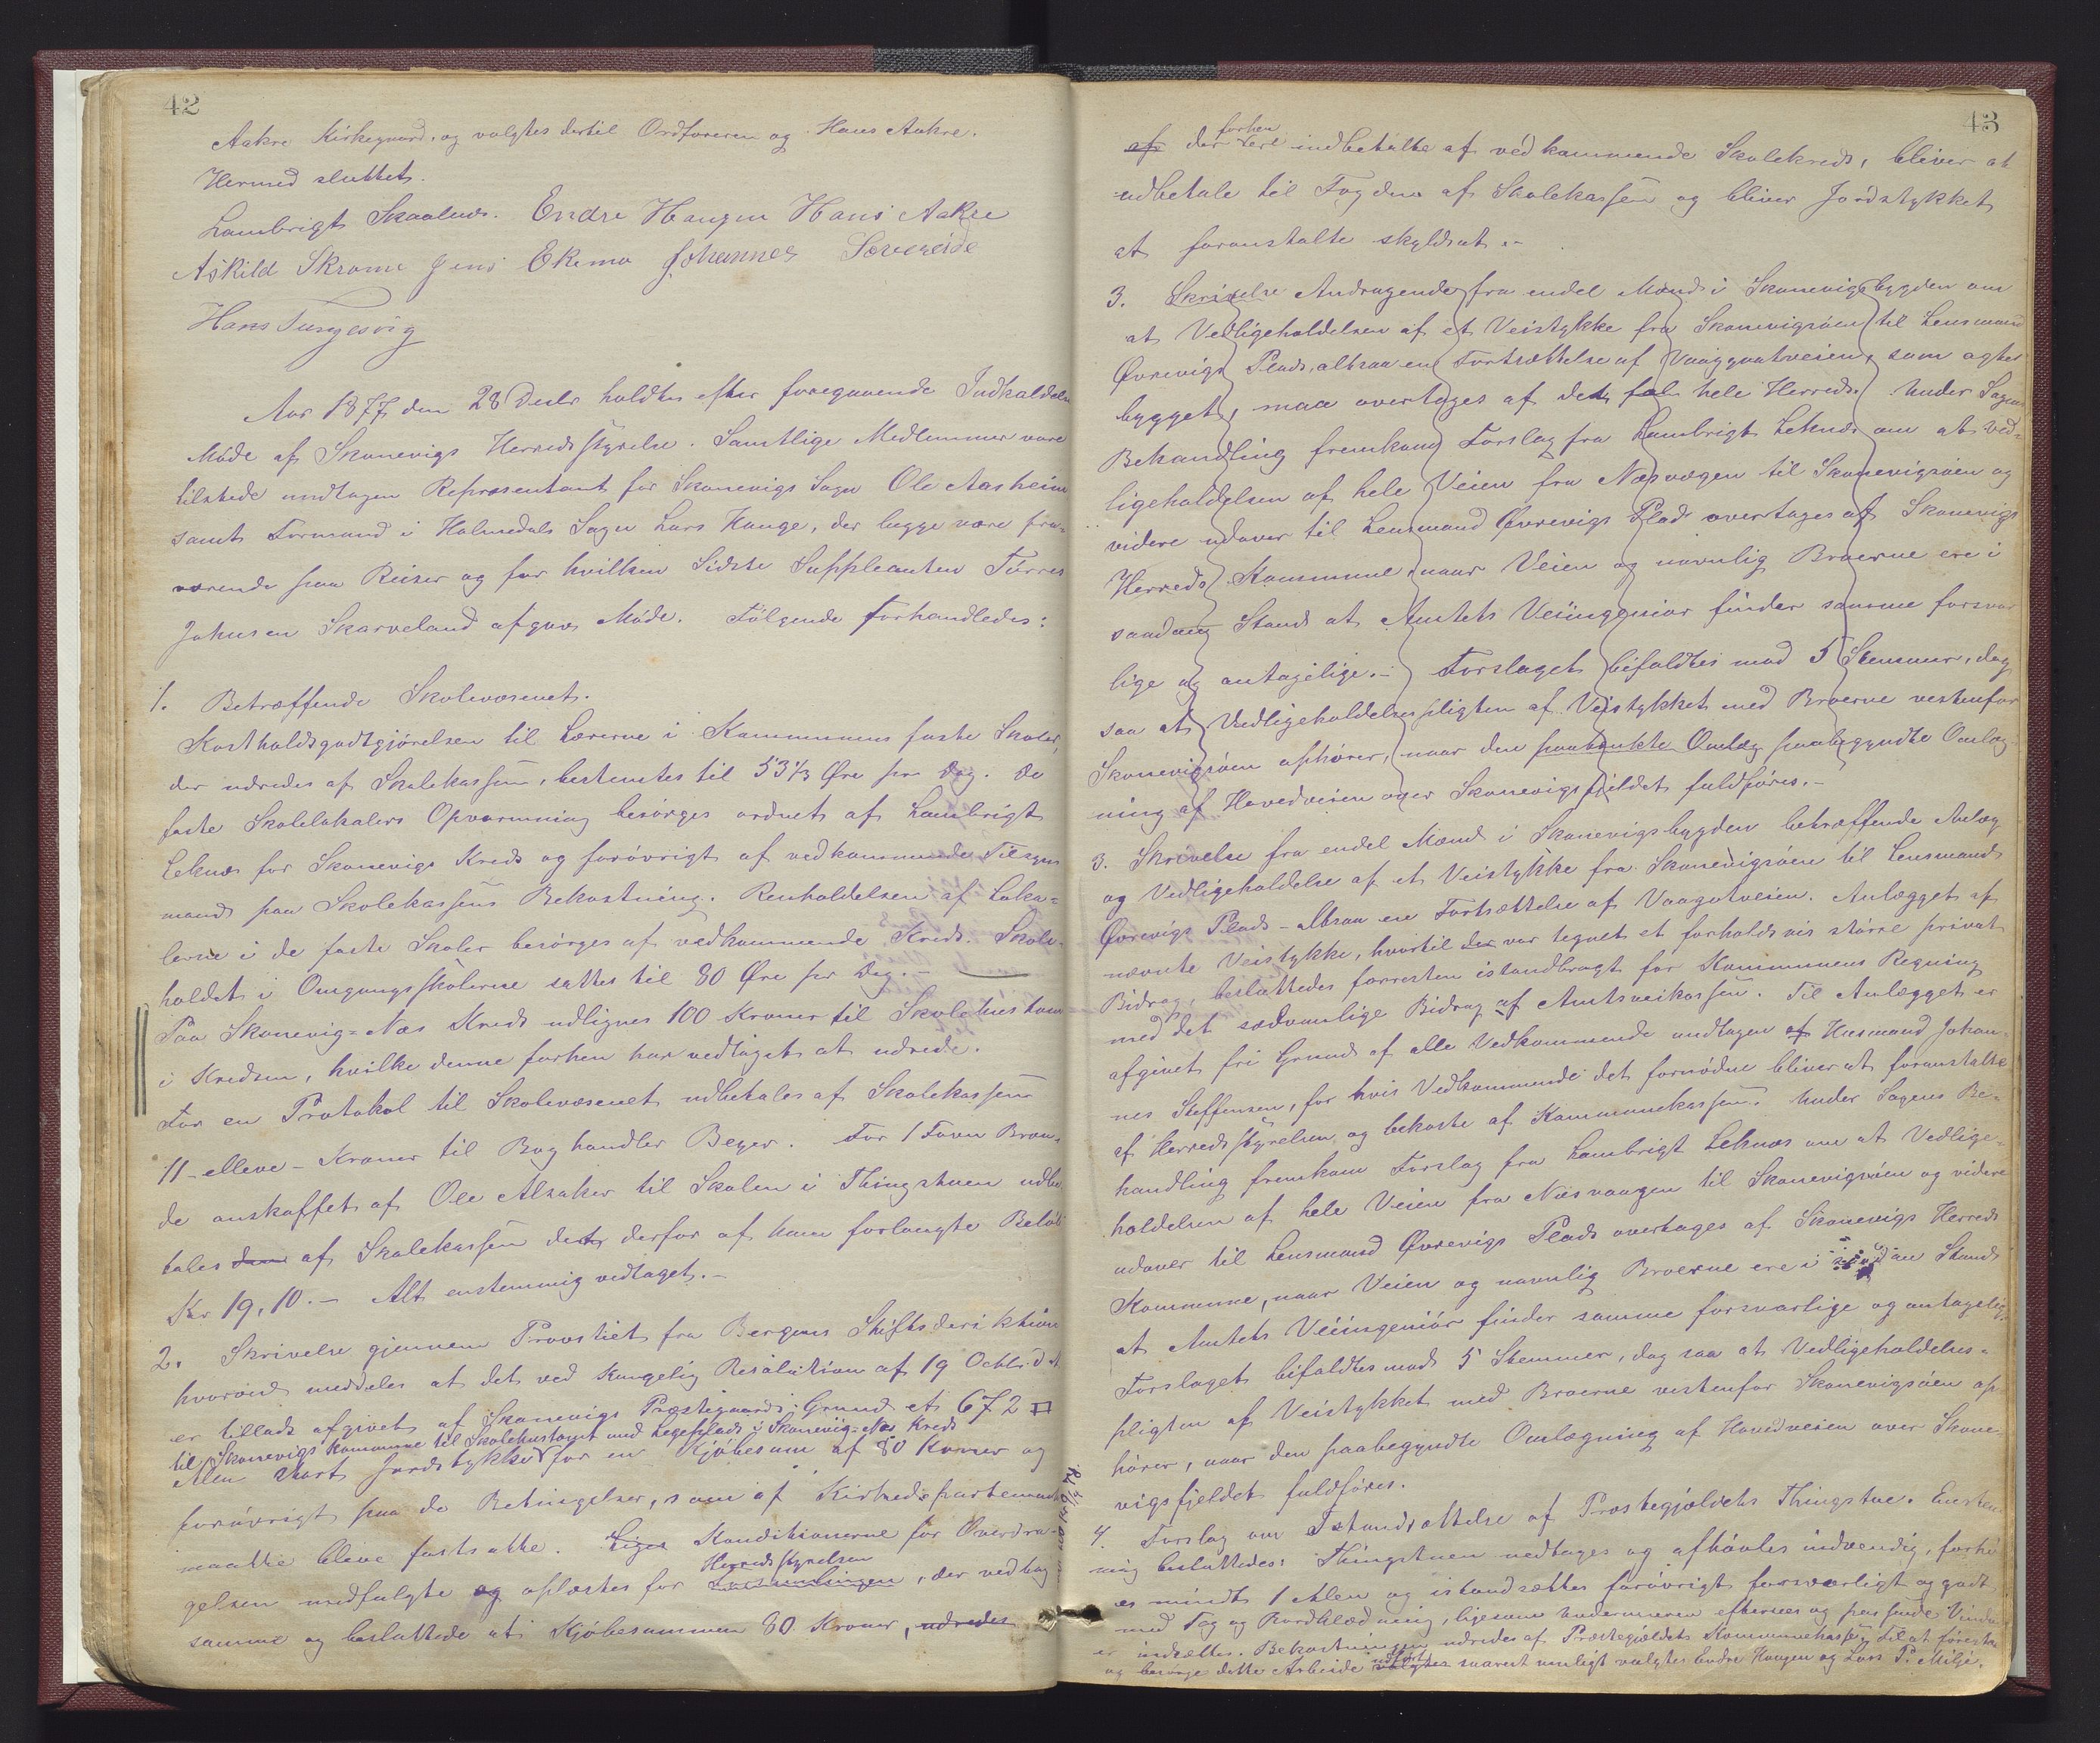 42
Aakre Kirkegaard, og valgtes dertil Ordføreren og Hans Aakre.
Hermed sluttet.
Lambrigt Skaalnes. Endre Haugen Hans Aakre
Askild Skromme Jens Ekemo Johannes Sævereide
Hans Tungesvig
Aar 1877 den 28 Decbr holdtes efter foregaaende Indkaldelse
Møde af Skonevigs Herredsstyrelse. Samtlige Medlemmer vare
tilstede undtagen Repræsentant for Skonevigs Sogn Ole Aasheim
samt Formand i Holmedals Sogn Lars Hauge, der begge vare fra-
værende paa Reiser og for hvilken Sidste Suppleanten Tørres
Johnsen Skarveland afgav Møde. Følgende forhandledes:
1. Betræffende Skolevæsenet.
Kostholdsgodtgjørelsen til Lærerne i Kommunens faste Skoler,
der udredes af Skolekassen, bestemtes til 53 1/3 Øre pr Dag. De
faste Skolelokalers Opvarmning besørges ordnet af Lambrigt
Leknes for Skonevigs Kreds og forøvrigt af vedkommende Tilsyns
mand paa Skolekassens Bekostning. Renholdelsen af Loka-
lerne i de faste Skoler besørges af vedkommende Kreds. Skole-
holdet i Omgangsskolerne sattes til 80 Øre pr Dag. –
Paa Skonevig=Næs Kreds udlignes 100 Kroner til Skolehustomt
i Kredsen, hvilke denne forhen har vedtaget at udrede.
For en Protokol til Skolevæsenet udbetales af Skolekassen
11 – elleve – Kroner til Boghandler Beyer. For 1 Favn Bræn-
de anskaffet af Ole Alsaker til Skolen i Thingstuen udbe-
tales dem af Skolekassen det derfor af ham forlangte Beløb
Kr 19,10. – Alt enstemmig vedtaget. –
2. Skrivelse gjennem Provstiet fra Bergens Stiftsdirektion
hvorved meddeles at det ved Kongelig Resolution af 19 Octbr d. A.
er tilladt afgivet af Skonevigs Præstegaards Grund et 672 □
til Skonevigs Kommune til Skolehustomt med Legeplads i Skonevig=Næs Kreds
Alen stort Jordstykke for en Kjøbesum af 80 Kroner og
forøvrigt paa de Betingelser, som af Kirkedepartementet
maatte blive fastsatte. Liges Konditionerne for Overdra-
gelsen medfulgte og oplæstes for Forsamlingen Herredsstyrelsen, der vedtog
samme og besluttede at Kjøbesummen 80 Kroner, udredes
43
af der forhen vare indbetalte af vedkommende Skolekreds, bliver at
udbetale til Fogden af Skolekassen og bliver Jordstykket
at foranstalte skyldsat. –
3. Skrivelse Andragende fra endel Mænd i Skonevigsbygden om
at Vedligeholdelsen af et Veistykke fra Skonevigsøen til Lensmand
Øvrevigs Plads, altsaa en Fortsættelse af Vaaggatveien, som agtes
bygget, maa overtages af det fol hele Herred. Under Sagens
Behandling fremkom Forslag fra Lambrigt Leknes om at Ved-
ligeholdelsen af hele Veien fra Næsvogen til Skonevigsøen og
videre udover til Lensmand Øvrevigs Plads overtages af Skonevigs
Herreds Kommune naar Veien og navnlig Broerne ere i
saadan Stand at Amtets Veiingeniør finder samme forsvar
lige og antagelige. – Forslaget bifaldtes mod 5 Stemmer, dog
saa at Vedligeholdelsespligten af Veistykket med Broerne vestenfor
Skonevigsøen ophører, naar den paatænkte Omlæg paabegyndte Omlæg-
ning af Hovedveien over Skonevigsfjeldet fuldføres. –
3. Skrivelse fra endel Mænd i Skonevigsbygden betræffende Anlæg
og Vedligeholdelse af et Veistykke fra Skonevigsøen til Lensmand
Øvrevigs Plads – altsaa en Fortsættelse af Vaagatveien. Anlægget af
nævnte Veistykke, hvortil der var tegnet et forholdsvis større privat
Bidrag, besluttedes forresten istandbragt for Kommunens Regning
med det sædvanlige Bidrag af Amtsveikassen. Til Anlægget er
afgivet fri Grund af alle Vedkommende undtagen af Husmand Johan-
nes Steffensen, for hvis Vedkommende det fornødne bliver at foranstalte
af Herredsstyrelsen og bekoste af Kommunekassen. Under Sagens Be-
handling fremkom Forslag fra Lambrigt Leknes om at Vedlige-
holdelsen af hele Veien fra Næsvaagen til Skonevigsøen og videre
udover til Lensmand Øvrevigs Plads overtages af Skonevigs Herreds
Kommune, naar Veien og navnlig Broerne ere i saadan Stand
at Amtets Veiingeniør finder samme forsvarlige og antagelige.
Forslaget bifaldtes mod 5 Stemmer, dog saa at Vedligeholdelses-
pligten af Veistykket med Broerne vestenfor Skonevigsøen op
hører, naar den paabegyndte Omlægning af Hovedveien over Skone
vigsfjeldet fuldføres.
4. Forslag om Istandsættelse af Præstegjeldets Thingstue. Enstem
mig besluttedes: Thingstuen nedtages og afhøvles indvendig, forhø
es mindst 1 Alen og istandsættes forøvrigt forsvarligt og godt
med Tag og Bordklædning, ligesom Undermuren eftersees og passende Vindu
er indsættes. Bekostningen udredes af Præstegjeldets Kommunekasse. Til at forestaa
og besørge dette Arbeide udført valgtes snarest muligt valgtes Endre Haugen og Lars P. Miljé.